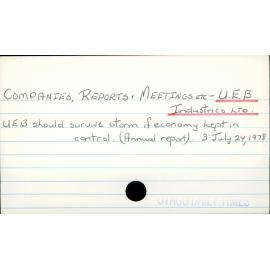 COMPANIES, REPORTS, MEETINGS etc - U.E.B.
Industries LTD.
UEB should survive storm if economy kept in
control. (Annual report). 3. July 24, 1978
OTAGO DAILY TIMES